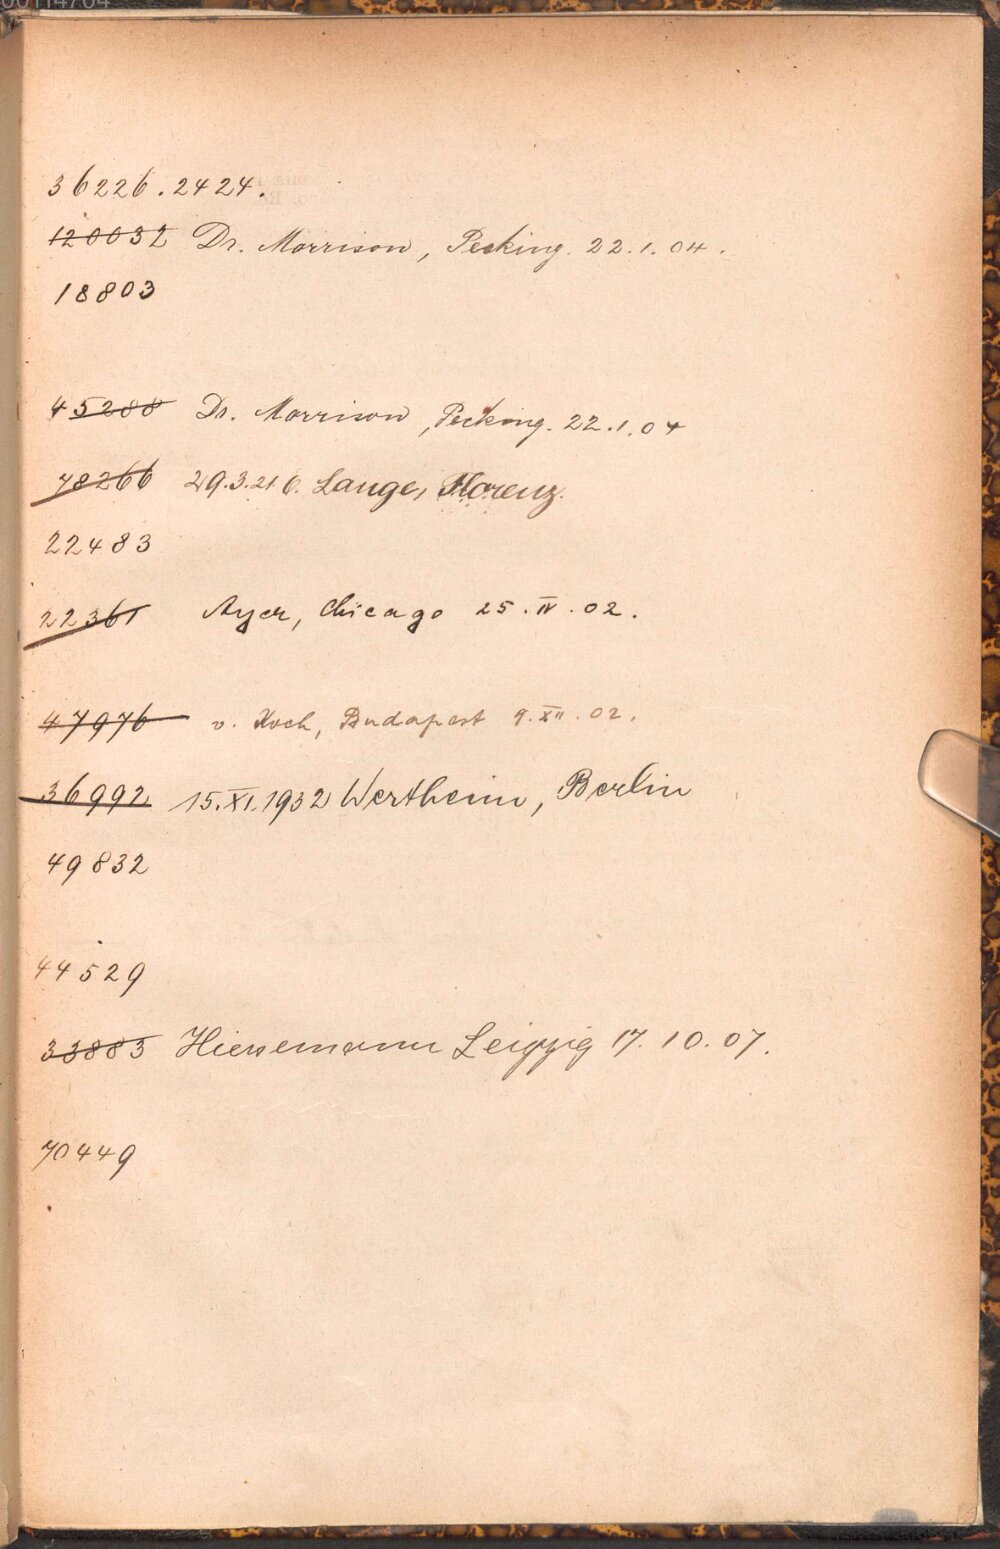 36226.2424.
120032 Dr. Morrison, Pecking. 22.1.04.
18803
45288 Dr. Morrison, Pecking. 22.1.04
78266 29.3.21 O. Lange, Florenz.
22483
22361 Ayer, Chicago 25.IV.02.
47976 v. Koch, Budapest 9.XII.02.
36992 15.XI.1932 Wertheim, Berlin
49832
44529
33883 Hiersemann Leipzig 17.10.07.
70449